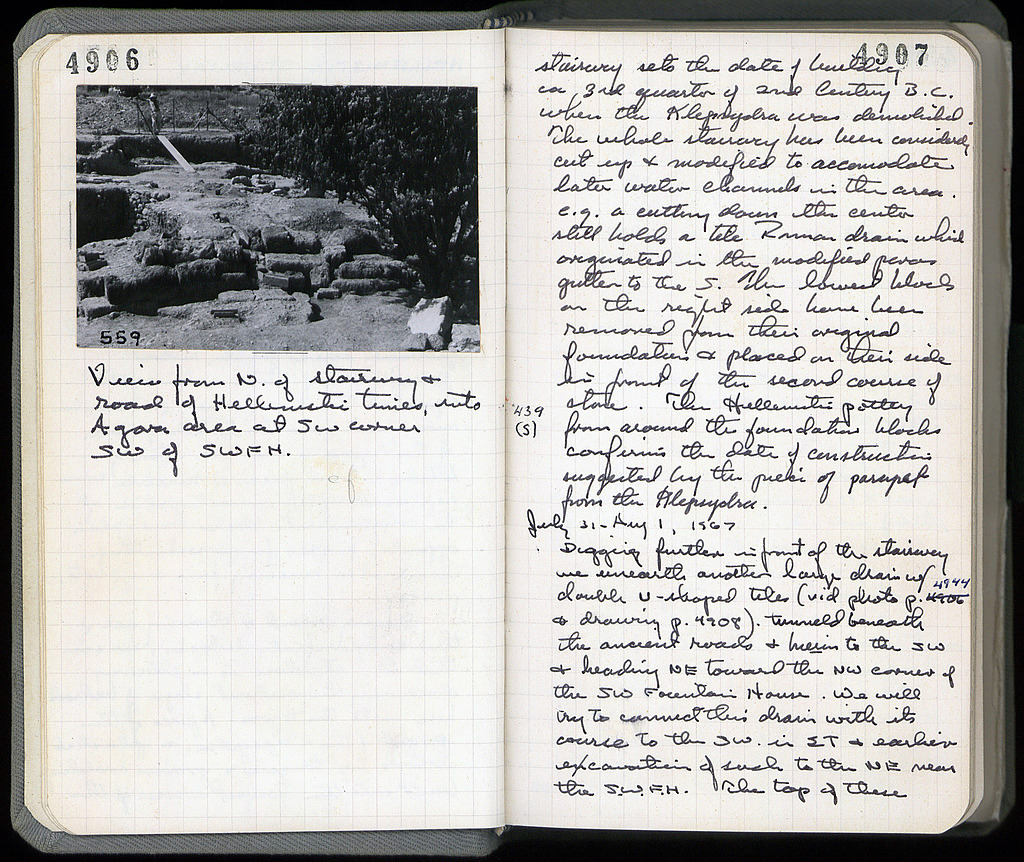 4906
559
View from N. of stairway &
road of Hellenistic times, into
Agora area at SW corner
SW of SWFH.
cf
4907
stairway sets the date of building
ca 3rd quarter of 2nd Century B.C.
when the Klepsydra was demolished.
The whole stairway has been considerably
cut up & modified to accomodate
later water channels in the area.
e.g. a cutting down the center
still holds a tile Roman drain which
originated in the modified poros
gutter to the S. The lowest blocks
on the right side have been
removed from their original
foundation & placed on their side
in front of the second course of
stone. The Hellenistic pottery
439
(S)
from around the foundation blocks
confirms the date of construction
suggested by the piece of parapet
from the Klepsydra.
July 31-Aug 1, 1967
Digging further in front of the stairway
we unearth another large drain w/
double U-shaped tiles (vid photo p. 4906 4944
& drawing p. 4908). tunneld beneath
the ancient roads & to the SW
& heading NE toward the NW corner of
the SW Fountain House. We will
try to connect this drain with its
course to the SW. in ΣT & earlier
excavation of such to the NE near
the S.W.F.H. The top of these